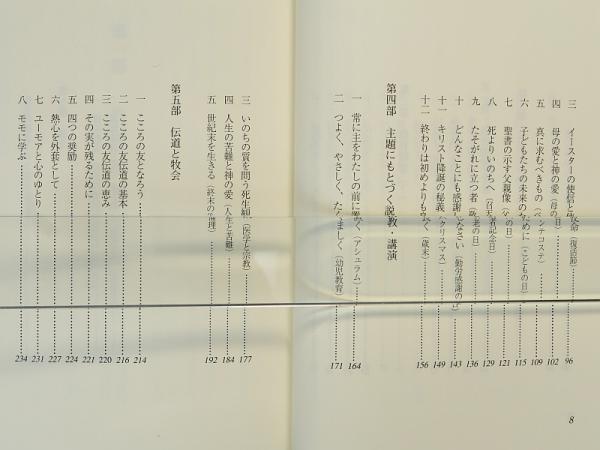 三 イースターの使信と 命（復活節）……96
四 母の愛と神の愛（母の日）……102
五 真に求むべきもの（ペンテコステ）……109
六 子どもたちの未来のために（こどもの日）……115
七 聖書の示す父親像（父の日）……121
八 死よりいのちへ（召天者記念日）……129
九 たそがれに立つ者（敬老の日）……136
十 どんなことにも感謝しなさい（勤労感謝の日）……143
十一 キリスト降誕の秘義（クリスマス）……149
十二 終わりは初めよりも良く（歳末）……156
第四部 主題にもとづく説教・講演
一 常に主をわたしの前に置く（アシュラム）……164
二 つよく、やさしく、たくましく（幼児教育）……171
8
三 いのちの質を問う死生観（医学と宗教）……177
四 人生の苦難と神の愛（人生と苦難）……184
五 世紀末を生きる（終末の倫理）……192
第五部 伝道と牧会
一 こころの友となろう……214
二 こころの友伝道の基本……216
三 こころの友伝道の恵み……220
四 その実が残るために……221
五 四つの奨励……224
六 熱心を外套として……227
七 ユーモアと心のゆとり……231
八 モモに学ぶ……234